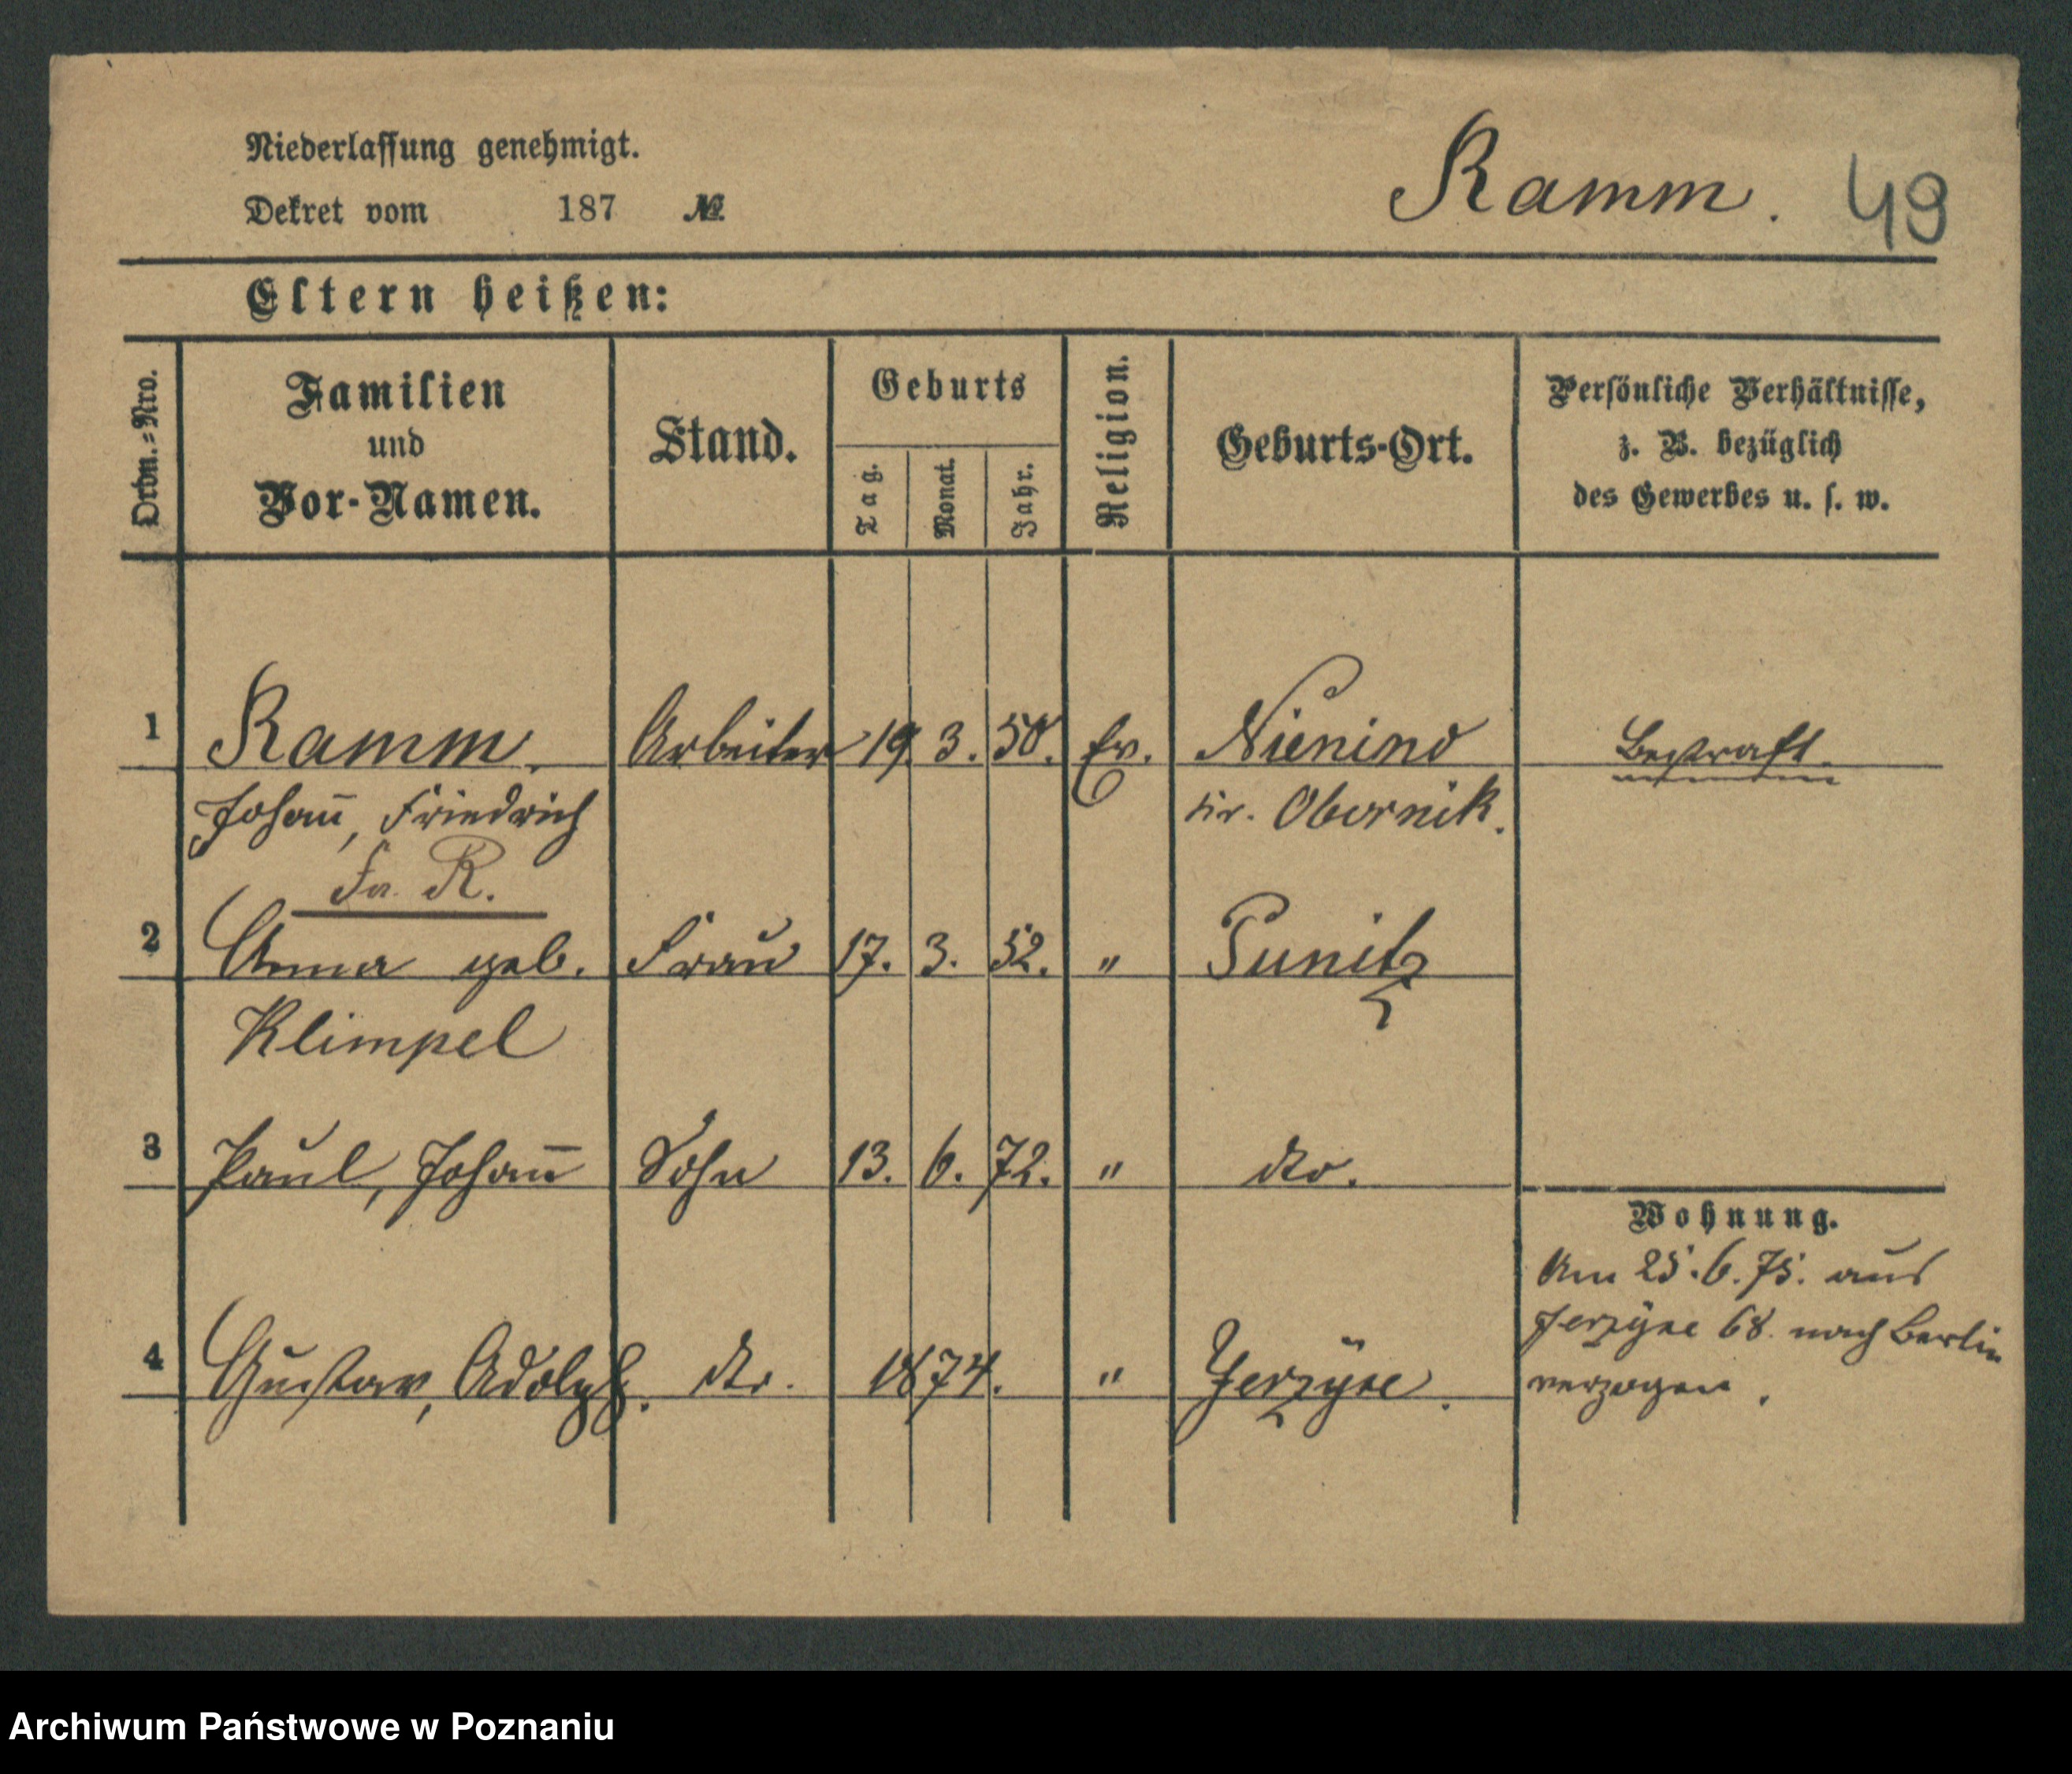 Niederlassung genehmigt.
Dekret vom 187 №
Ramm. 49
Eltern heißen:
Ordn.=Nro.
Familien
und
Vor-Namen.
Stand.
Geburts
Tag.
Monat.
Jahr.
Religion.
Geburts-Ort.
Persönliche Verhältnisse,
z. B. bezüglich
des Gewerbes u. s. w.
1 Ramm. Arbeiter 19. 3. 50. Ev. Nienino Bestraft.
Johann̄, Friedrich Kr. Obornik.
Fr. R.
2 Anna geb. Frau 17. 3. 52. " Punitz
Klimpel
3 Paul, Johan̄ Sohn 13. 6. 72. " dto.
Wohnung.
Am 25. 6. 75. aus
Jerzyce 68. nach Berlin
verzogen.
4 Gustav, Adolph. dto. 1874. " Jerzyce.
Archiwum Państwowe w Poznaniu